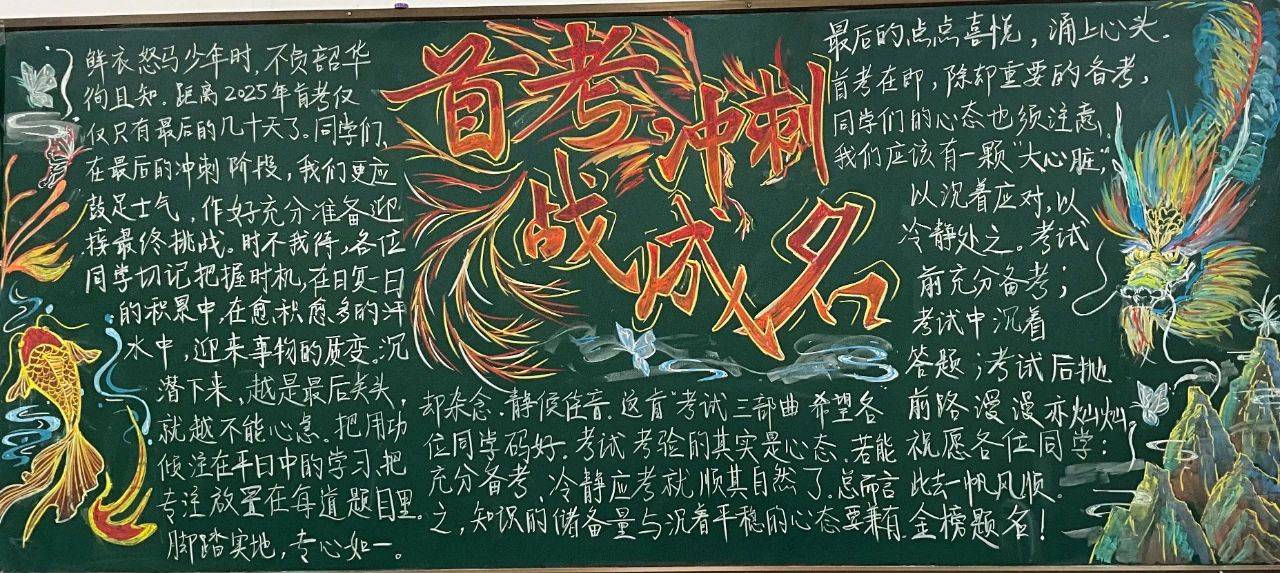 首考冲刺
战成名
鲜衣怒马少年时,不负韶华
徇且知.距离2025年首考仅
仅只有最后的几十天了。同学们,
在最后的冲刺阶段,我们更应
鼓足士气,作好充分准备迎
接最终挑战。时不我待,各位
同学切记把握时机,在日复一日
的积累中,在愈积愈多的汗
水中,迎来事物的质变.沉
潜下来,越是最后关头,
就越不能心急.把用功
倾注在平日中的学习.把
专注放置在每道题目里.
脚踏实地,专心如一。
最后的点点喜悦,涌上心头.
首考在即,除却重要的备考,
同学们的心态也须注意.
我们应该有一颗“大心脏”,
以沉着应对,以
冷静处之。考试
前充分备考;
考试中沉着
答题;考试后抛
却杂念.静候佳音.这首“考试三部曲”希望各
位同学码好.考试考验的其实是心态.若能
充分备考、冷静应考就顺其自然了.总而言
之,知识的储备量与沉着平稳的心态要兼有.
前路漫漫亦灿灿,
祝愿各位同学:
此去一帆风顺.
金榜题名!